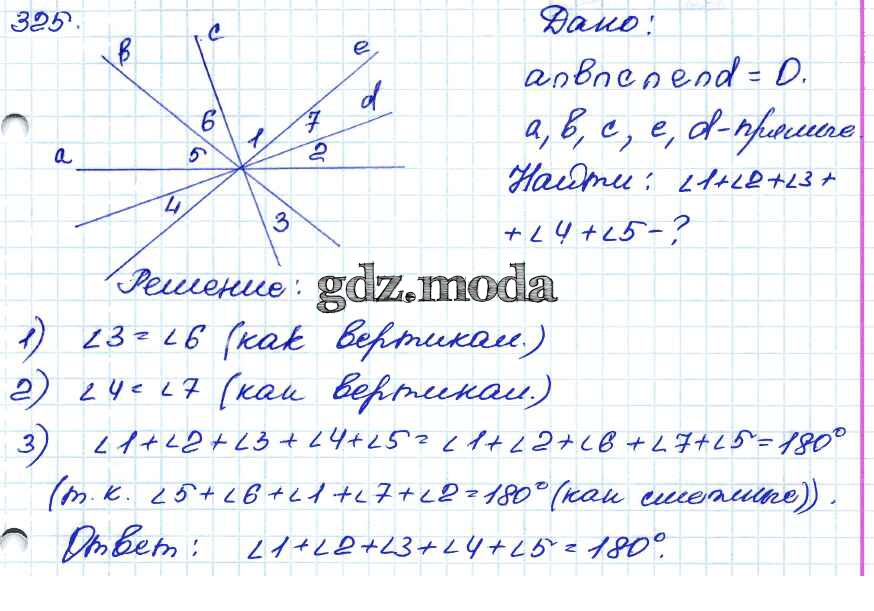 325.
c
в
e
d
6
1
7
a
5
2
4
3
Дано:
a∩в∩c∩e∩d = О.
a, в, c, e, d - прямые.
Найти: ∠1+∠2+∠3+
+∠4+∠5-?
Решение:
gdz.moda
1) ∠3=∠6 (как вертикал.)
2) ∠4=∠7 (как вертикал.)
3) ∠1+∠2+∠3+∠4+∠5=∠1+∠2+∠6+∠7+∠5=180°
(т.к. ∠5+∠6+∠1+∠7+∠2=180° (как смежные)).
Ответ: ∠1+∠2+∠3+∠4+∠5=180°.